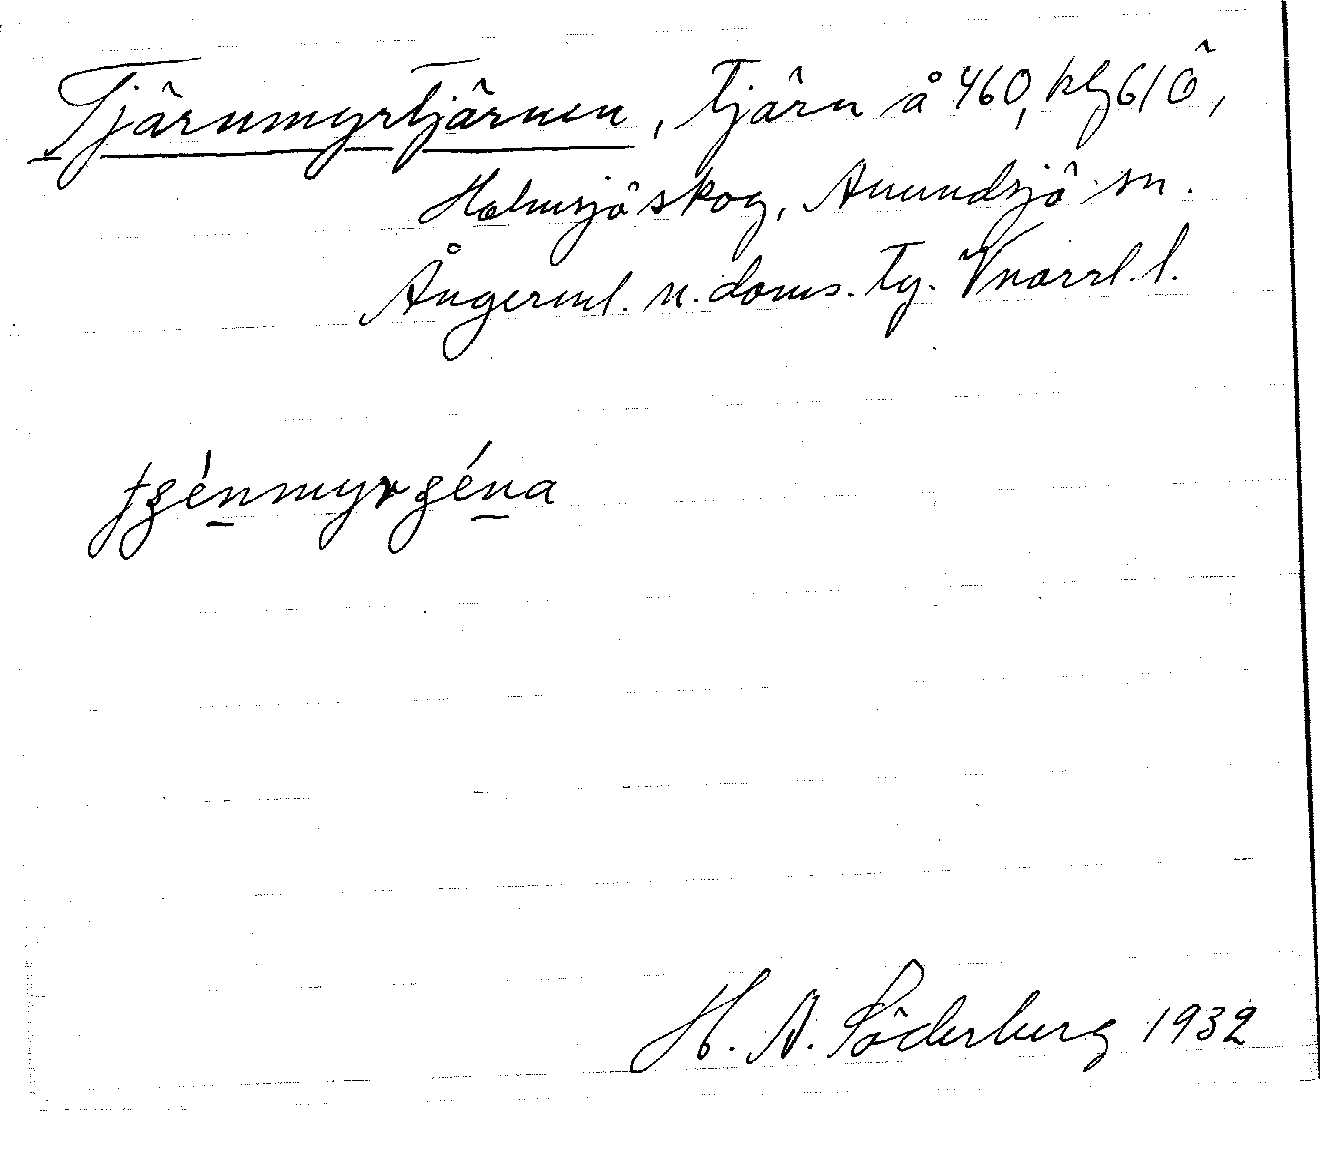 Tjärnmyrtjärnen, tjärn å 460, kbl 61 Ö,
Holmsjö skog, Anundsjö sn.
Ångerml. n. doms. tg. Vnorrl. l.
H. A. Söderberg 1932